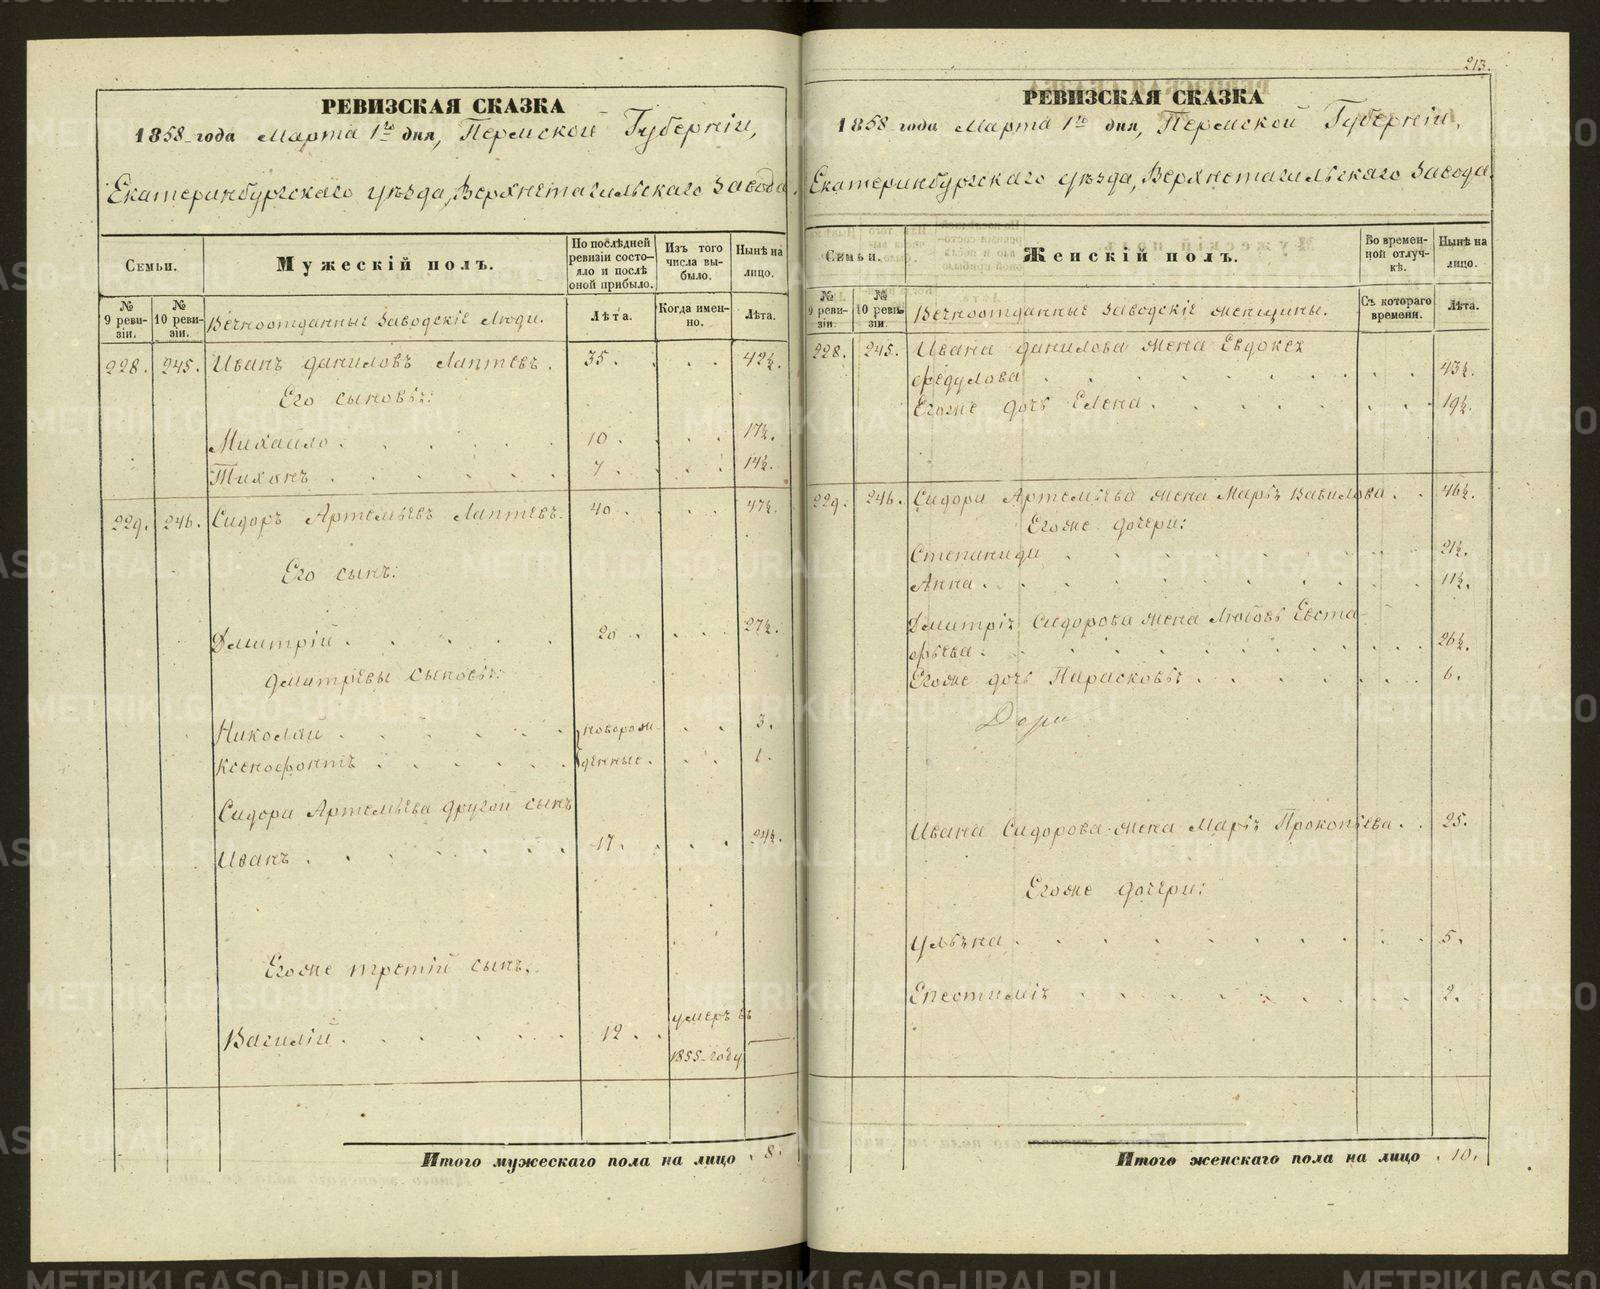 РЕВИЗСКАЯ СКАЗКА
1858 года Марта 1го дня, Пермской Губерніи,
Екатеринбургскаго уѣзда, Верхнетагильскаго завода.
Семьи.
Мужескій полъ.
По послѣдней ревизіи состояло и послѣ оной прибыло.
Изъ того числа выбыло.
Нынѣ на лицо.
№ 9 ревизіи.
№ 10 ревизіи.
Вечноотданные заводскіе люди.
Лѣта.
Когда именно.
Лѣта.
228. 245. Иванъ Даниловъ Лаптевъ. 35. 42½.
Его сыновья:
Михайло. 10. 17½.
Тихонъ. 7. 14½.
229. 246. Сидоръ Артемьевъ Лаптевъ. 40. 47½.
Его сынъ:
Дмитрій. 20. 27½.
Дмитріевы сыновья:
Николай. новорож- 3.
Ксенофонтъ. денные. 1.
Сидора Артемьева другой сынъ
Иванъ. 17. 24½.
Егоже третій сынъ.
Василій. 12. умеръ въ
1855 году
Итого мужескаго пола на лицо 8.
213.
РЕВИЗСКАЯ СКАЗКА
1858 года Марта 1го дня, Пермской Губерніи,
Екатеринбургскаго уѣзда, Верхнетагильскаго завода.
Семьи.
Женскій полъ.
Во временной отлучкѣ.
Нынѣ на лицо.
№ 9 ревизіи.
№ 10 ревизіи.
Вечноотданные заводскіе женщины.
Съ котораго времени.
Лѣта.
228. 245. Ивана Данилова жена Евдокея
Федулова 43½.
Егоже дочь Елена. 19½.
229. 246. Сидора Артемьева жена Марья Вавилова. 46½.
Егоже дочери:
Степанида 21½.
Анна. 11½.
Дмитрія Сидорова жена Любовь Евста-
фьева. 26½.
Егоже дочь Парасковья 6.
Дарья
Ивана Сидорова жена Марья Прокопьева. 25.
Егоже дочери:
Ульяна. 5.
Епестимія 2.
Итого женскаго пола на лицо 10.
METRIKI.GASO-URAL.RU